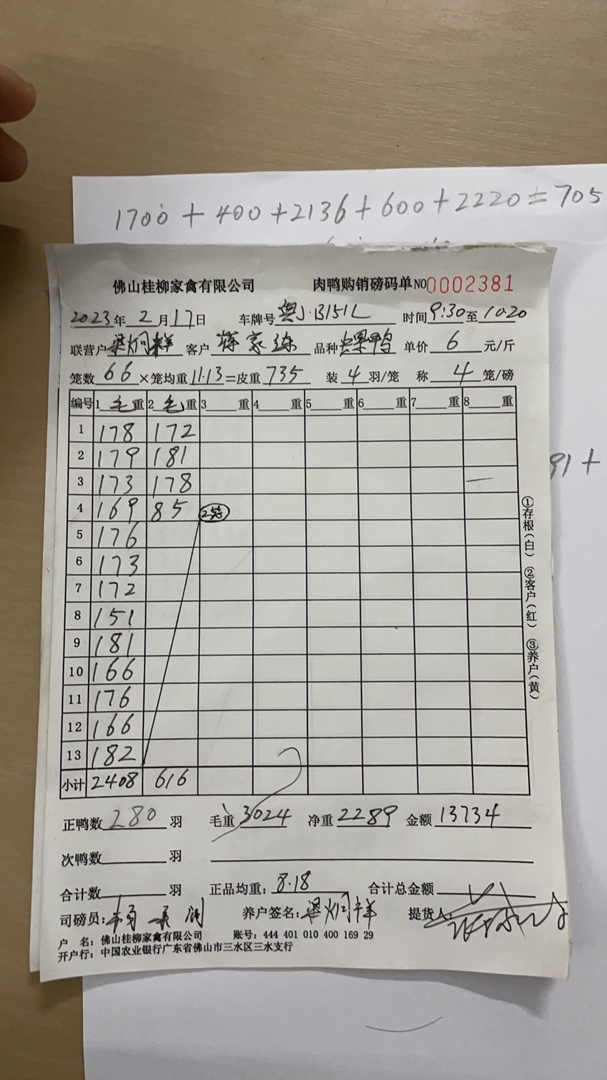 1700 + 400 + 2136 + 600 + 2220 = 705
佛山桂柳家禽有限公司 肉鸭购销磅码单 NO 0002381
2023年 2月17日 车牌号 粤J·B151L 时间 9:30至 10:20
联营户 客户 品种 单价 6 元/斤
笼数 66 ×笼均重 11.13 =皮重 735 装 4 羽/笼 称 4 笼/磅
编号 1 毛 重 2 毛 重 3 重 4 重 5 重 6 重 7 重 8 重
1 178 172
2 179 181
3 173 178
4 169 85
5 176
6 173
7 172
8 151
9 181
10 166
11 176
12 166
13 182
小计 2408 616
正鸭数 280 羽 毛重 3024 净重 2289 金额 13734
次鸭数 羽
合计数 羽 正品均重: 8.18 合计总金额
司磅员: 养户签名: 提货人
户 名: 佛山桂柳家禽有限公司 账号: 444 401 010 400 169 29
开户行: 中国农业银行广东省佛山市三水区三水支行
①存根(白) ②客户(红) ③养户(黄)
91 +